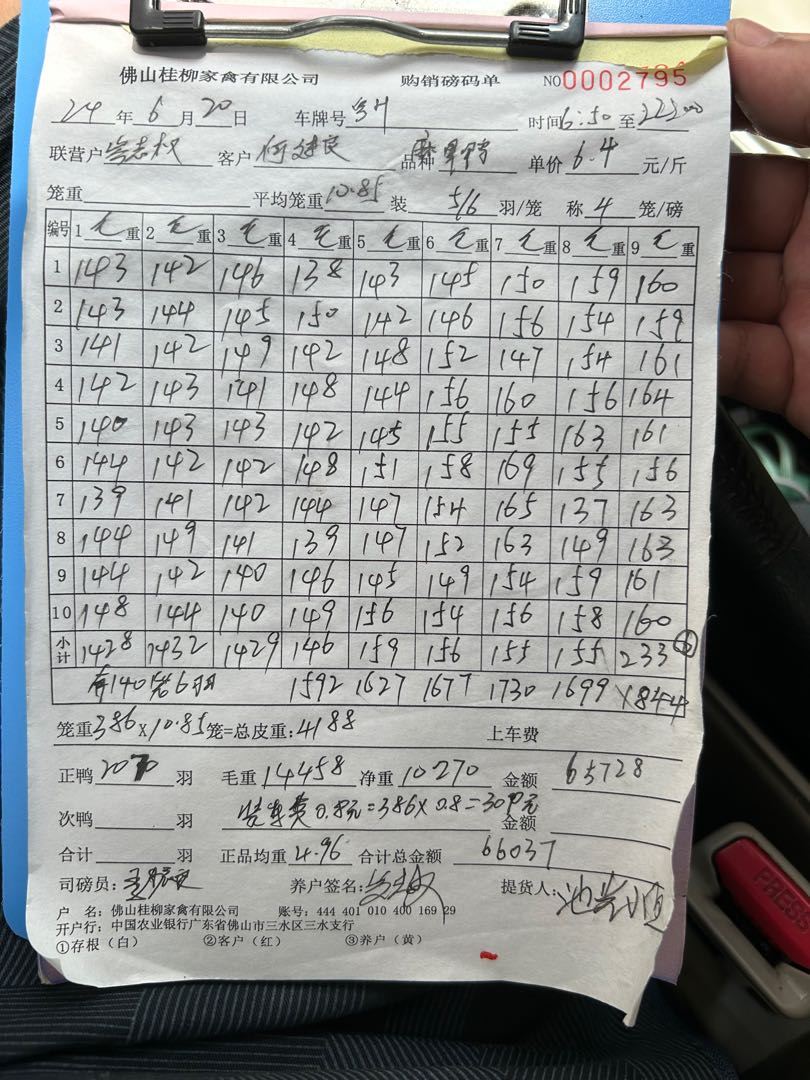 佛山桂柳家禽有限公司 购销磅码单 NO0002795
24 年 6 月 20 日 车牌号 时间 6:50 至
联营户 客户 何 品种 单价 6.4 元/斤
笼重 平均笼重 10.85 装 5/6 羽/笼 称 4 笼/磅
编号 1 毛 重 2 毛 重 3 毛 重 4 毛 重 5 毛 重 6 毛 重 7 毛 重 8 毛 重 9 毛 重
1 143 142 146 138 143 145 150 159 160
2 143 144 145 150 142 146 156 154 159
3 141 142 149 142 148 152 147 154 161
4 142 143 141 148 144 156 160 156 164
5 140 143 143 142 145 155 155 163 161
6 144 142 142 148 151 158 169 155 156
7 139 141 142 144 147 154 165 137 163
8 144 149 141 139 147 152 163 149 163
9 144 142 140 146 145 149 154 159 161
10 148 144 140 149 156 154 156 158 160
小计 1428 1432 1429 146 159 156 155 155 233
有140笼6羽 1592 1627 1677 1730 1699 1844
笼重 386 X 10.85 笼=总皮重: 4188 上车费
正鸭 2070 羽 毛重 14458 净重 10270 金额 65728
次鸭 羽 装车费0.8元=386×0.8=309元 金额
合计 羽 正品均重 4.96 合计总金额 66037
司磅员: 养户签名: 提货人:
户 名: 佛山桂柳家禽有限公司 账号: 444 401 010 400 169 29
开户行: 中国农业银行广东省佛山市三水区三水支行
①存根（白） ②客户（红） ③养户（黄）
PRESS